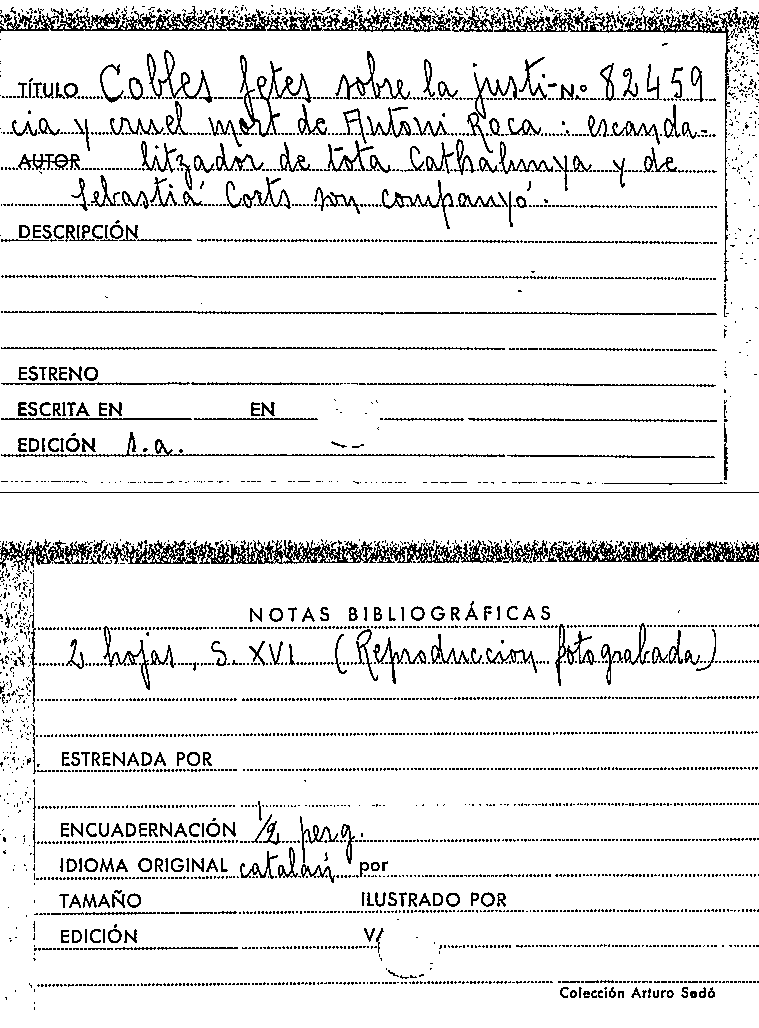 TÍTULO Cobles fetes sobre la justi- N.º 82459
cia y cruel mort de Antoni Roca : escanda-
AUTOR litzador de tota Cathalunya y de
Sebastiá Corts son companyó.
DESCRIPCIÓN
ESTRENO
ESCRITA EN EN
EDICIÓN s.a.
NOTAS BIBLIOGRÁFICAS
2 hojas, S. XVI (Reproduccion fotograbada)
ESTRENADA POR
ENCUADERNACIÓN 1/2 perg.
IDIOMA ORIGINAL catalán por
TAMAÑO ILUSTRADO POR
EDICIÓN V/
Colección Arturo Sedó